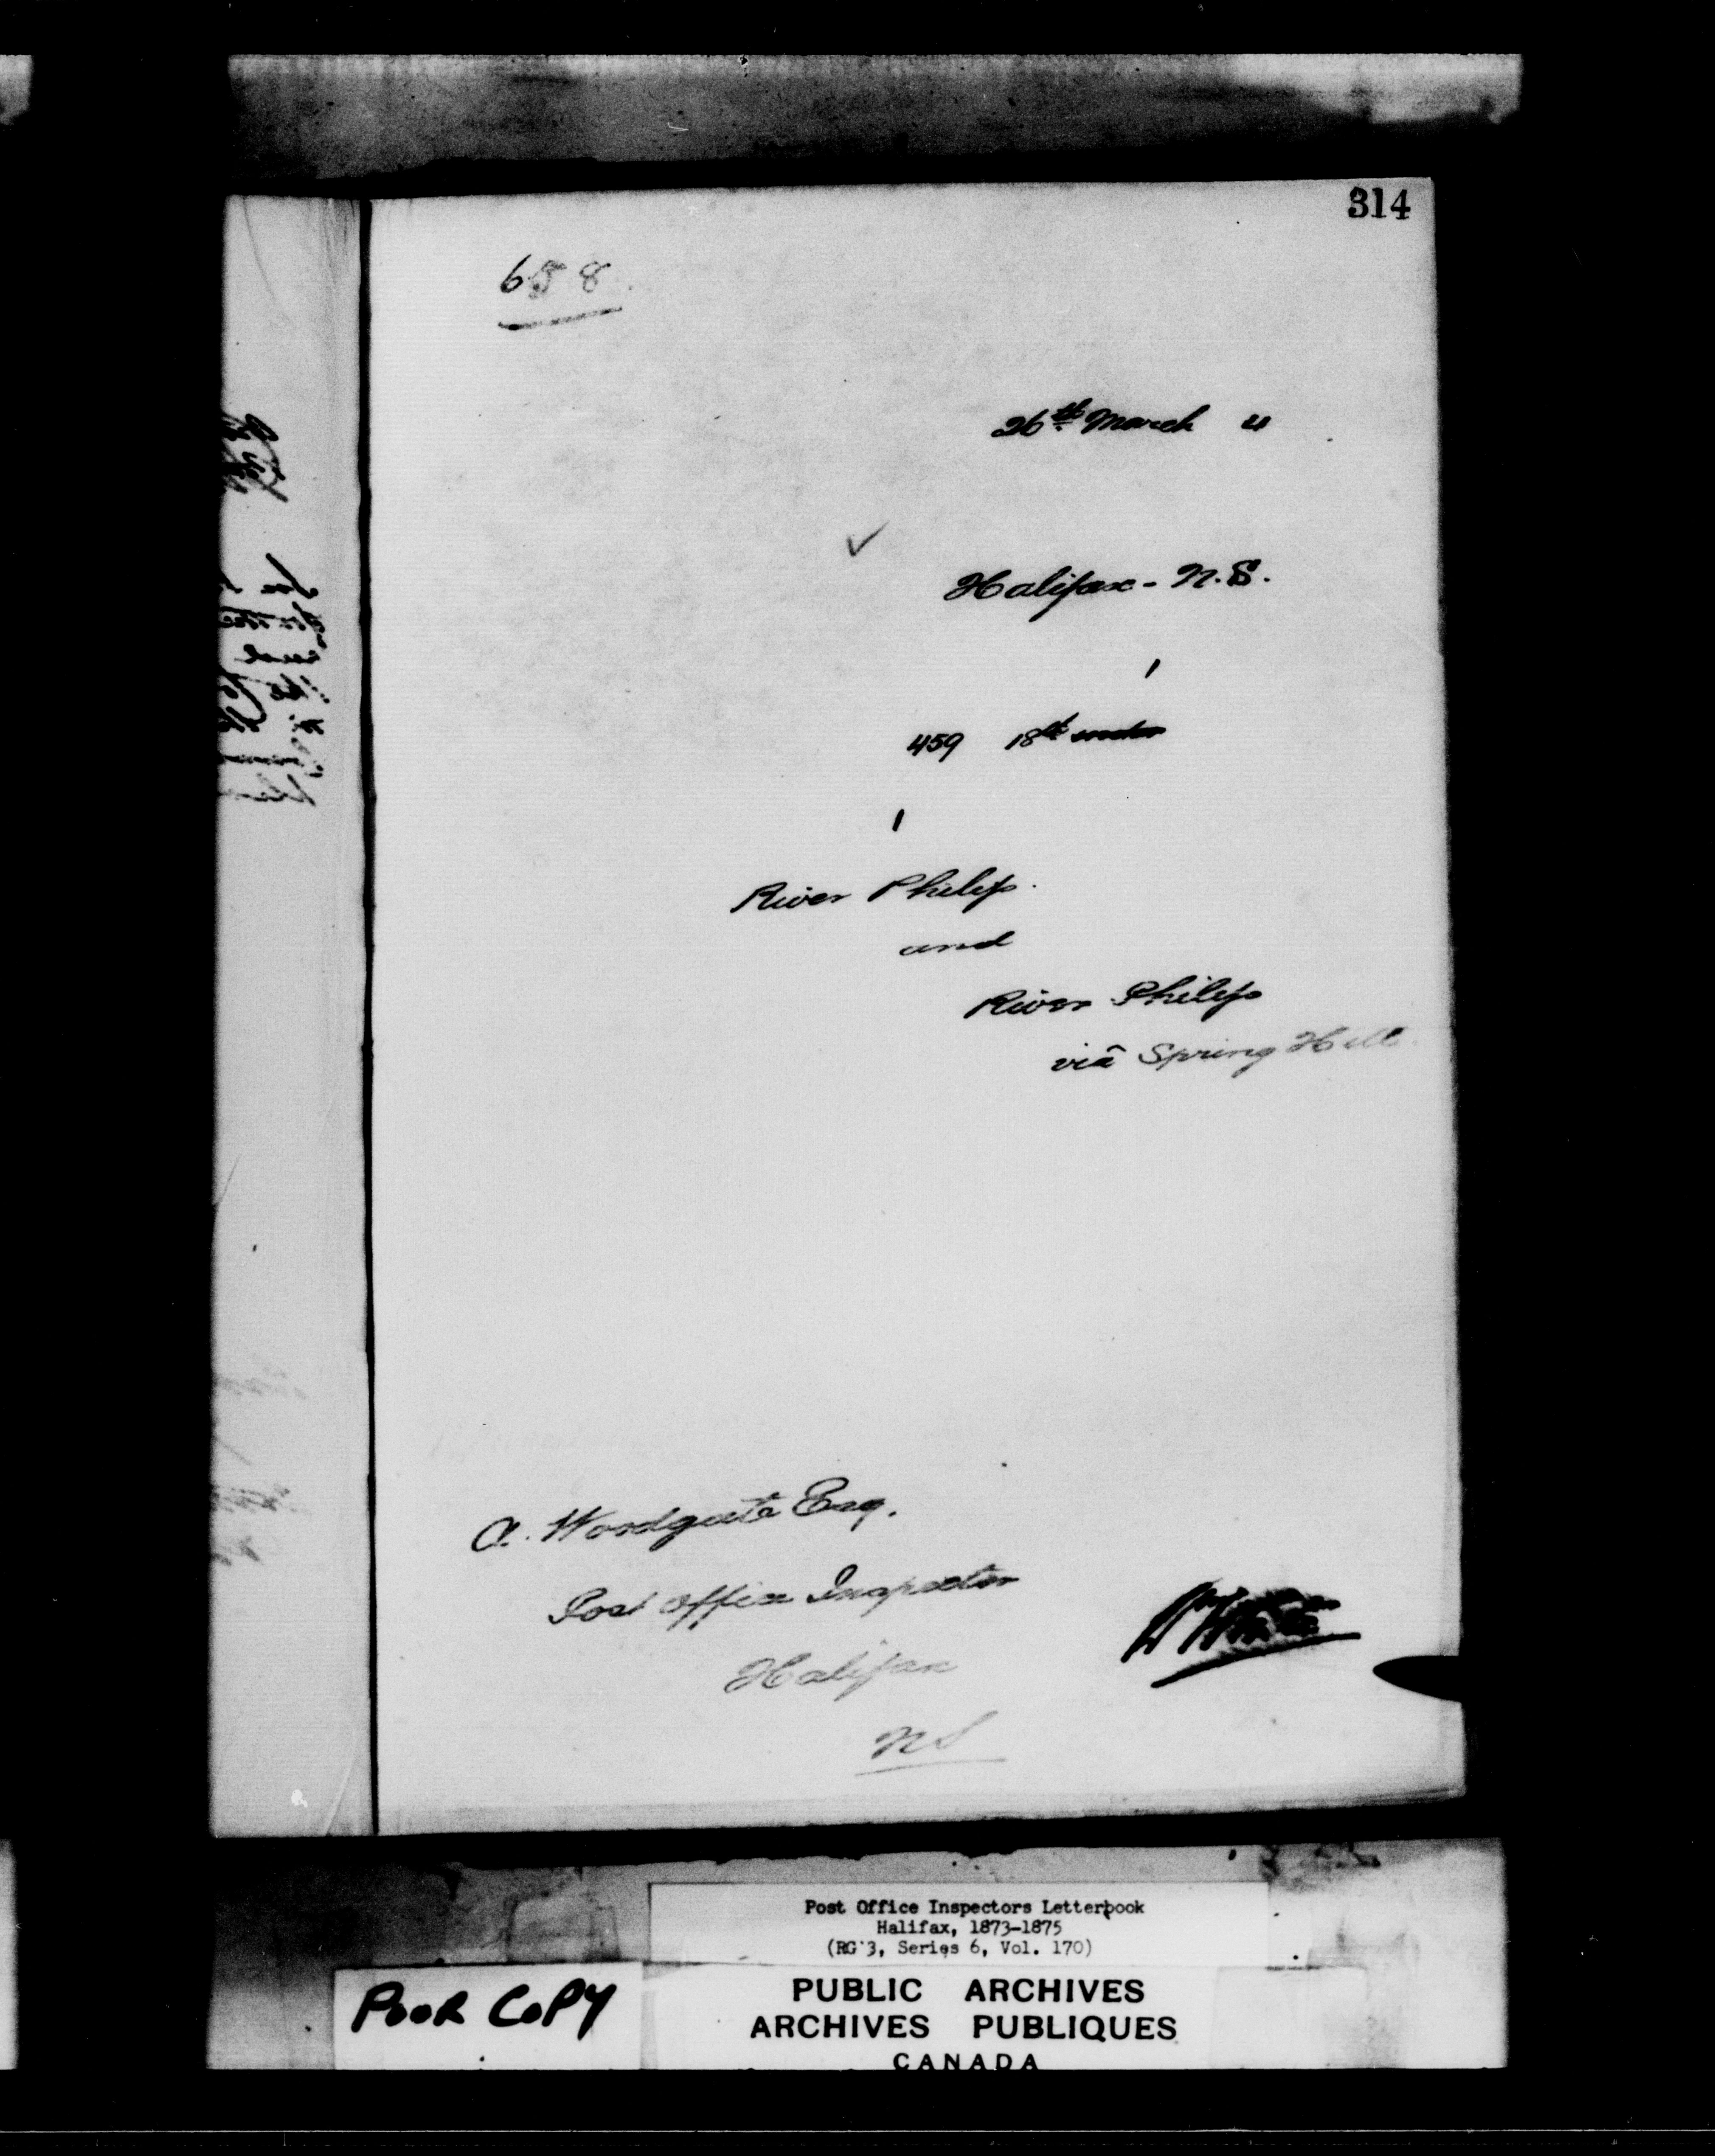 314
658
26th March 4
Halifax - N.S.
459 18th
River Philip
and
River Philip
via Spring Hill
A. Woodgate Esq.
Post Office Inspector
Halifax
NS
Post Office Inspectors Letterbook
Halifax, 1873-1875
(RG 3, Series 6, Vol. 170)
POOR COPY
PUBLIC ARCHIVES
ARCHIVES PUBLIQUES
CANADA